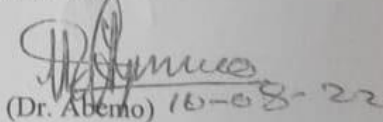 (Dr. Abemo) 10-08-22